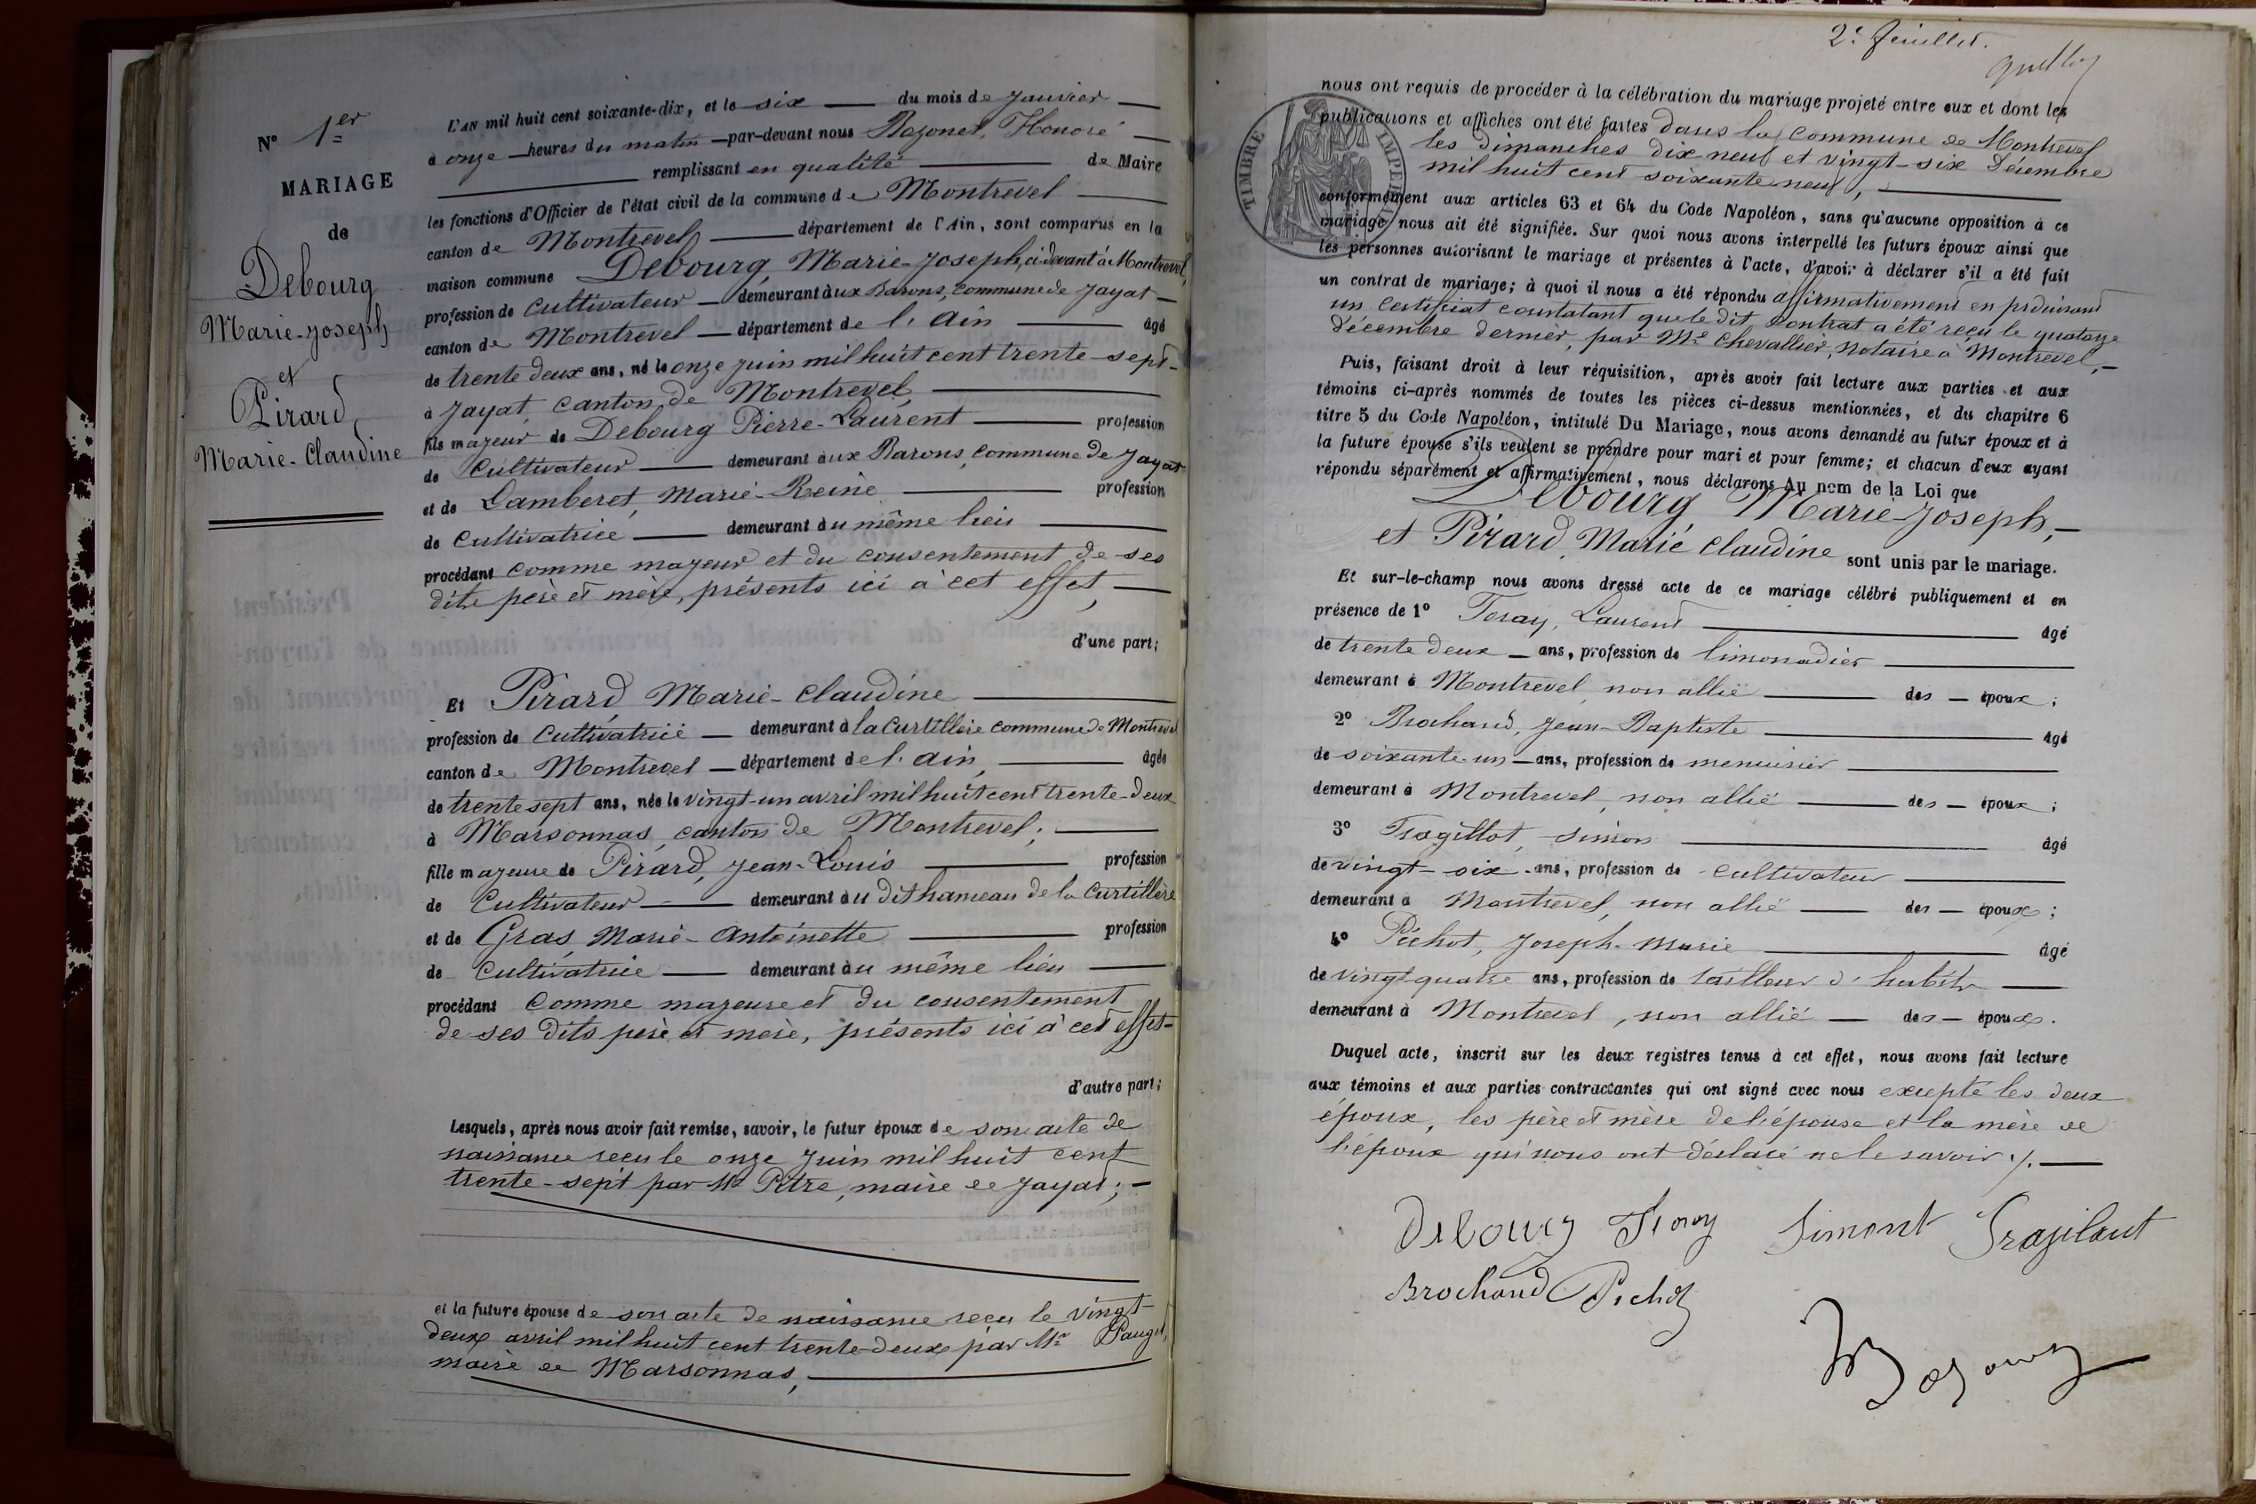 N° 1er
MARIAGE
de
Debourg
Marie-Joseph
et
Pirard
Marie-Claudine
L'AN mil huit cent soixante-dix, et le six du mois de Janvier
à onze heures du matin par-devant nous Bozonet, Honoré
remplissant en qualité de Maire
les fonctions d'Officier de l'état civil de la commune de Montrevel
canton de Montrevel département de l'Ain, sont comparus en la
maison commune Debourg, Marie-Joseph, ci-devant à Montrevel,
profession de Cultivateur demeurant aux Barons, commune de Jayat
canton de Montrevel département de l'Ain âgé
de trente deux ans, né le onze juin mil huit cent trente-sept
à Jayat canton de Montrevel,
fils majeur de Debourg Pierre-Laurent profession
de Cultivateur demeurant aux Barons, commune de Jayat
et de Gamberet, Marie-Reine profession
de Cultivatrice demeurant au même lieu
procédant comme majeur et du consentement de ses
dits père et mère, présents ici à cet effet,
d'une part;
Et Pirard, Marie-Claudine
profession de Cultivatrice demeurant à la Curtillère commune de Montrevel
canton de Montrevel département de l'Ain, âgée
de trente sept ans, née le vingt-un avril mil huit cent trente-deux
à Marsonnas, canton de Montrevel;
fille majeure de Pirard, Jean-Louis profession
de Cultivateur demeurant au dit hameau de la Curtillère
et de Gras, Marie-Antoinette profession
de Cultivatrice demeurant au même lieu
procédant comme majeure et du consentement
de ses dits père et mère, présents ici à cet effet
d'autre part;
Lesquels, après nous avoir fait remise, savoir, le futur époux de son acte de
naissance reçu le onze juin mil huit cent
trente-sept par Mr Pitre, maire de Jayat;
et la future épouse de son acte de naissance reçu le vingt-
deux avril mil huit cent trente-deux par Mr Pauget,
maire de Marsonnas,
2e feuillet.
nous ont requis de procéder à la célébration du mariage projeté entre eux et dont les
publications et affiches ont été faites dans la commune de Montrevel
les dimanches dix neuf et vingt-six Décembre
mil huit cent soixante neuf,
TIMBRE IMPERIAL
conformément aux articles 63 et 64 du Code Napoléon, sans qu'aucune opposition à ce
mariage nous ait été signifiée. Sur quoi nous avons interpellé les futurs époux ainsi que
les personnes autorisant le mariage et présentes à l'acte, d'avoir à déclarer s'il a été fait
un contrat de mariage; à quoi il nous a été répondu affirmativement en produisant
un certificat constatant que le dit contrat a été reçu le quatorze
décembre dernier, par Me Chevallier, notaire à Montrevel,
Puis, faisant droit à leur réquisition, après avoir fait lecture aux parties et aux
témoins ci-après nommés de toutes les pièces ci-dessus mentionnées, et du chapitre 6
titre 5 du Code Napoléon, intitulé Du Mariage, nous avons demandé au futur époux et à
la future épouse s'ils veulent se prendre pour mari et pour femme; et chacun d'eux ayant
répondu séparément et affirmativement, nous déclarons Au nom de la Loi que
Debourg Marie-Joseph,
et Pirard, Marie Claudine sont unis par le mariage.
Et sur-le-champ nous avons dressé acte de ce mariage célébré publiquement et en
présence de 1° Feray, Laurent âgé
de trente deux ans, profession de limonadier
demeurant à Montrevel, non allié des époux;
2° Brochand, Jean-Baptiste âgé
de soixante-un ans, profession de menuisier
demeurant à Montrevel, non allié des époux;
3° Tragillot, Simon âgé
de vingt-six ans, profession de cultivateur
demeurant à Montrevel, non allié des époux;
4° Pichot, Joseph-Marie âgé
de vingt quatre ans, profession de tailleur d'habits
demeurant à Montrevel, non allié des époux.
Duquel acte, inscrit sur les deux registres tenus à cet effet, nous avons fait lecture
aux témoins et aux parties contractantes qui ont signé avec nous excepté les deux
époux, les père et mère de l'épouse et la mère de
l'époux qui nous ont déclaré ne le savoir ./.
Debourg Simont Tragilaut
Brochand Pichot